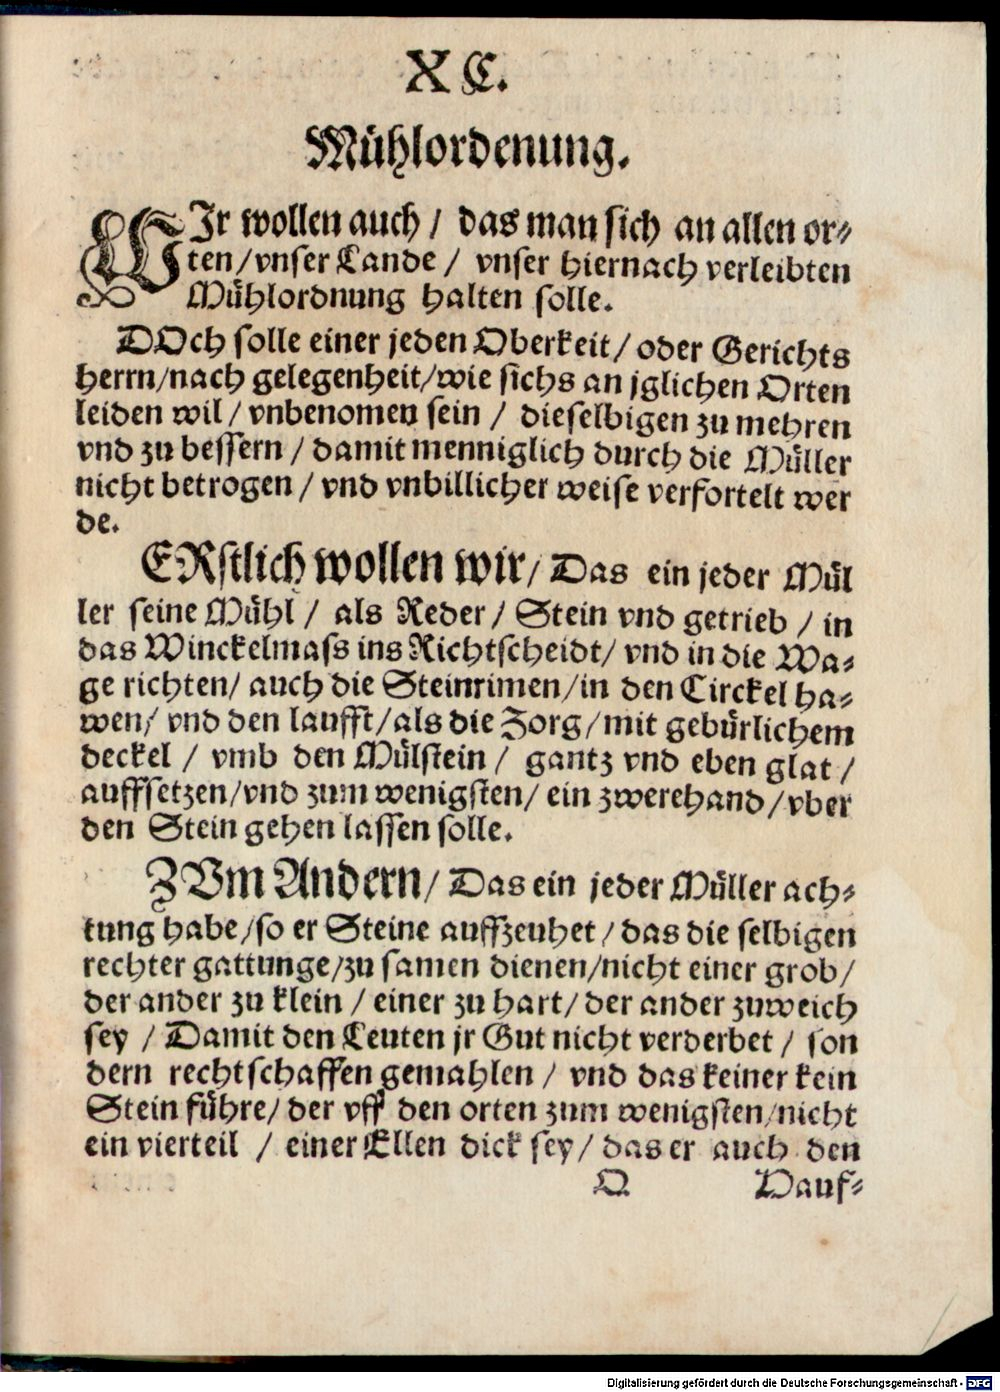 XC.
Mühlordenung.
WIr wollen auch / das man sich an allen or⸗
ten/vnser Lande / vnser hiernach verleibten
Mühlordnung halten solle.
DOch solle einer jeden Oberkeit/ oder Gerichts
herrn/nach gelegenheit/wie sichs an jglichen Orten
leiden wil / vnbenomen sein / dieselbigen zu mehren
vnd zu bessern / damit menniglich durch die Müller
nicht betrogen / vnd vnbillicher weise verfortelt wer
de.
ERstlich wollen wir/ Das ein jeder Mül
ler seine Mühl / als Reder / Stein vnd getrieb / in
das Winckelmass ins Richtscheidt/ vnd in die Wa⸗
ge richten/ auch die Steinrimen/in den Circkel ha⸗
wen/ vnd den laufft/als die Zorg/mit gebürlichem
deckel / vmb den Mülstein / gantz vnd eben glat /
auffsetzen/vnd zum wenigsten/ ein zwerehand/vber
den Stein gehen lassen solle.
ZVm Andern/ Das ein jeder Müller ach⸗
tung habe/so er Steine auffzeuhet/das die selbigen
rechter gattunge/zu samen dienen/nicht einer grob/
der ander zu klein / einer zu hart/ der ander zuweich
sey / Damit den Leuten jr Gut nicht verderbet / son
dern rechtschaffen gemahlen / vnd das keiner kein
Stein führe/ der vff den orten zum wenigsten/nicht
ein vierteil / einer Ellen dick sey/ das er auch den
O Hauf⸗
Digitalisierung gefördert durch die Deutsche Forschungsgemeinschaft - DFG